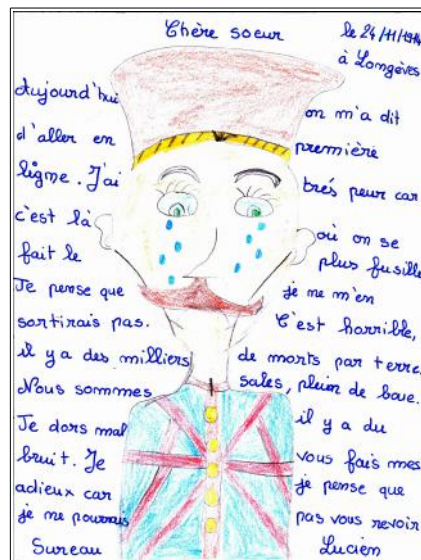 Chère soeur le 24/11/1914
à Longèves
Aujourd'hui on m'a dit
d'aller en première
ligne. J'ai très peur car
c'est là où on se
fait le plus fusille
Je pense que je ne m'en
sortirais pas. C'est horrible,
il y a des milliers de morts par terre.
Nous sommes sales, plein de boue.
Je dors mal il y a du
bruit. Je vous fais mes
adieux car je pense que
je ne pourrais pas vous revoir
Sureau Lucien